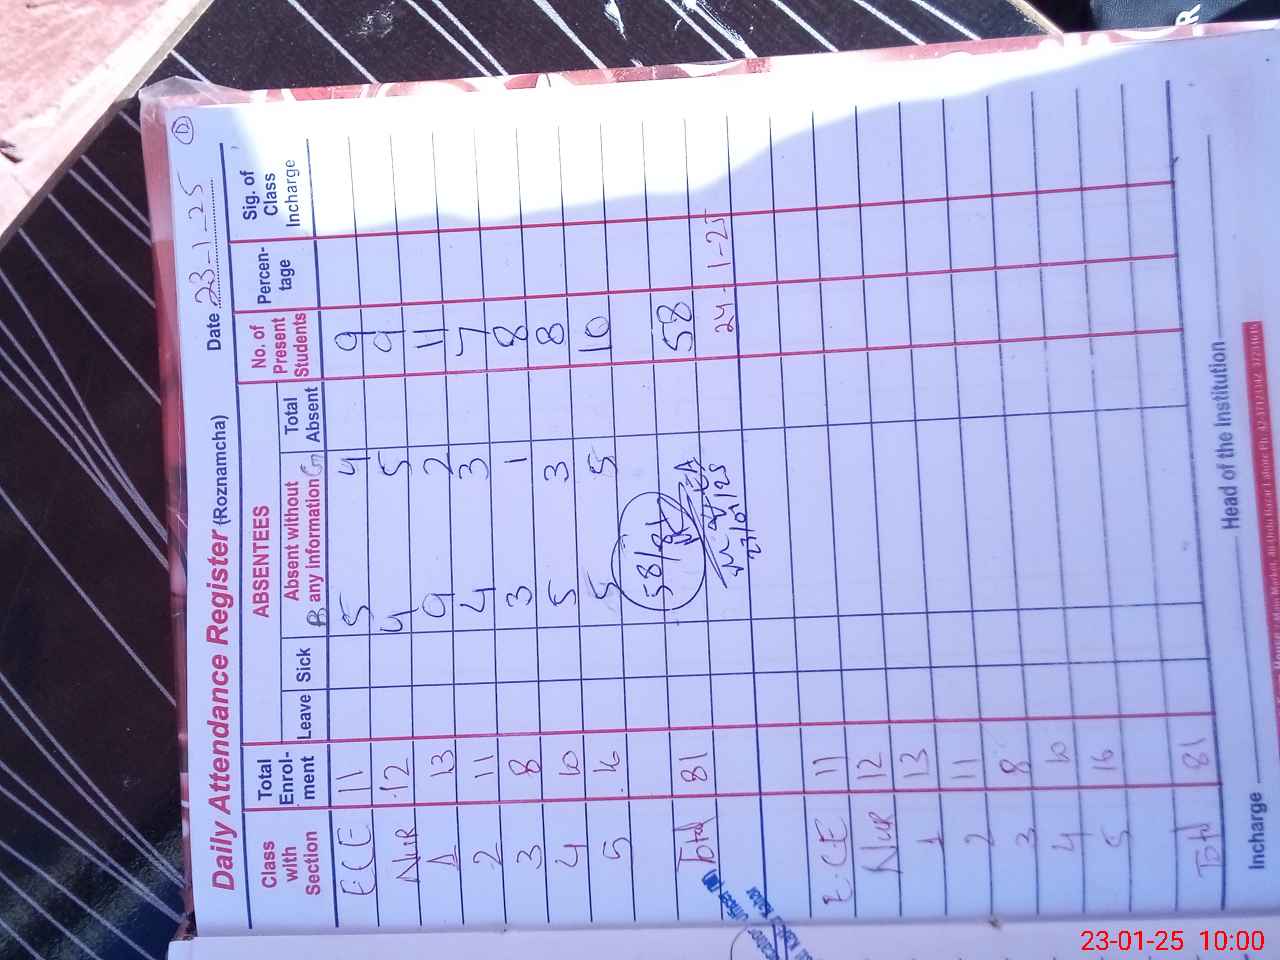 Daily Attendance Register (Roznamcha) Date 23-1-25
Class with Section Total Enrol-ment ABSENTEES No. of Present Students Percen-tage Sig. of Class Incharge
Leave Sick B Absent without any Information G Total Absent
ECE 11 5 4 9
Nur 12 4 5 9
1 13 9 2 11
2 11 4 3 7
3 8 3 1 8
4 10 5 3 8
5 16 5 5 10
58/81
Total 81 58
23/01/25
24-1-25
ECE 11
Nur 12
1 13
2 11
3 8
4 10
5 16
Total 81
Incharge Head of the Institution
23-01-25 10:00